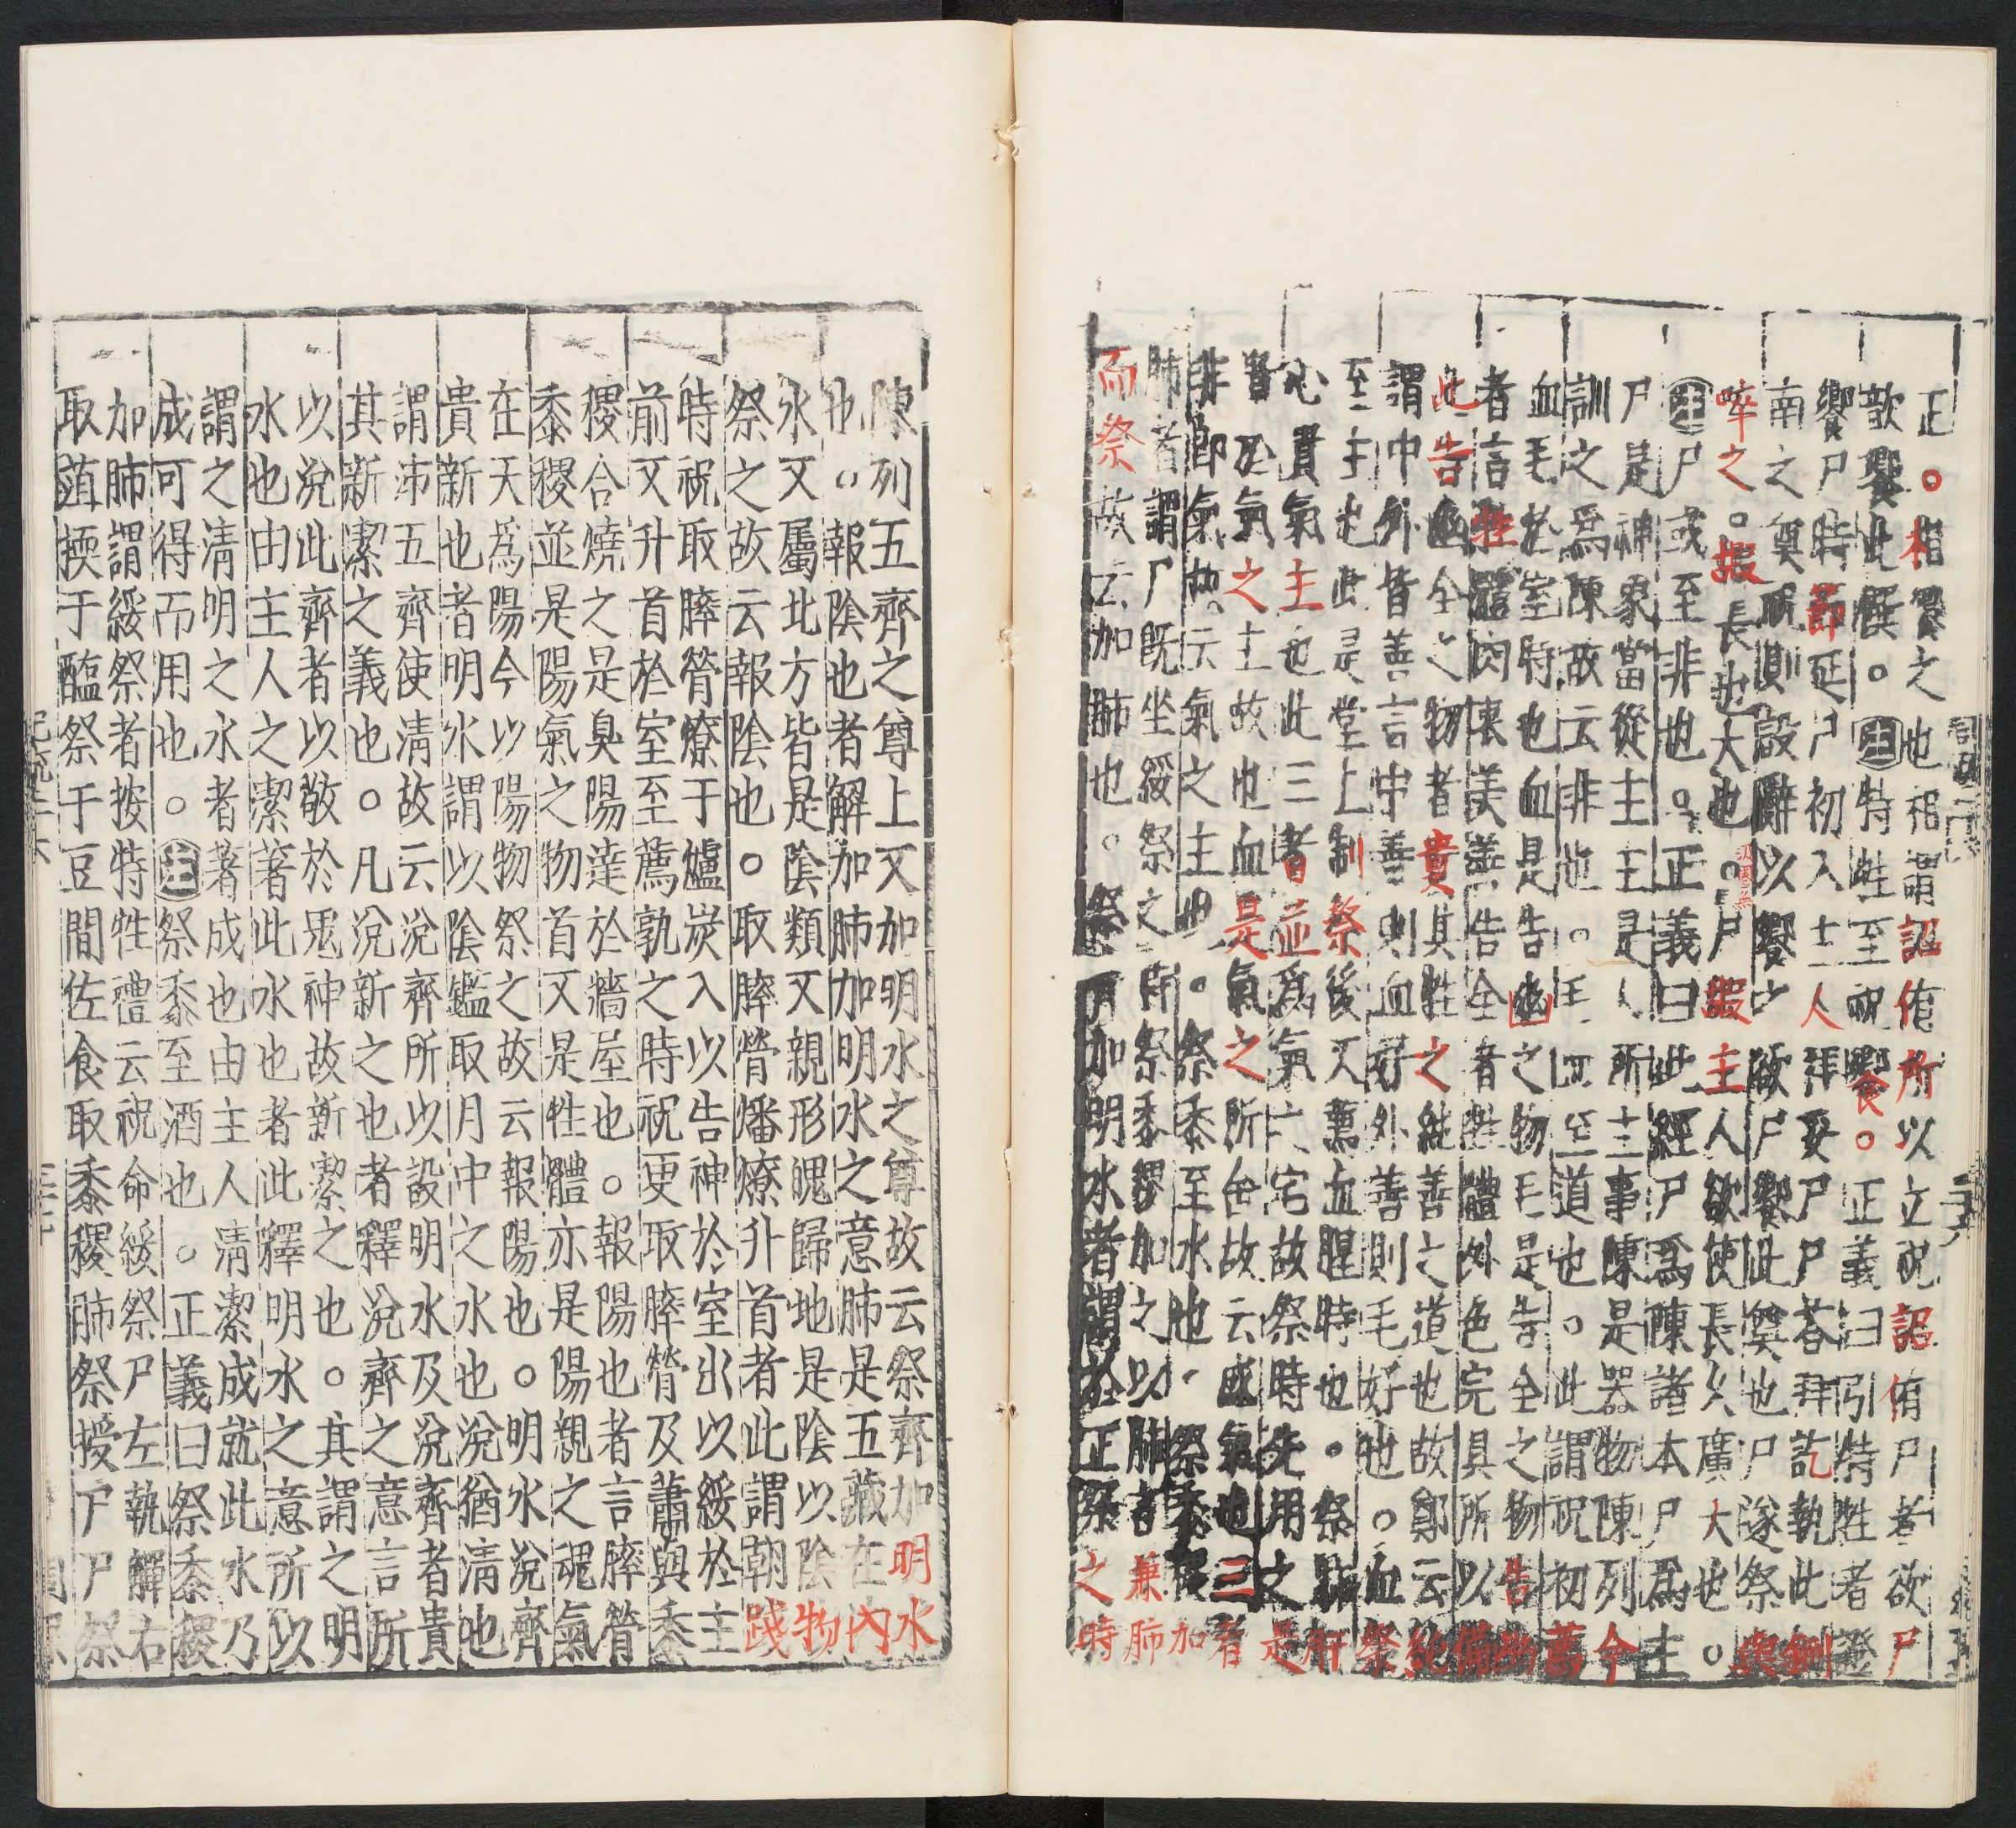 正○相相饗之也相謂詔侑所以立祝詔侑尸者欲尸
歆饗此饌○注特牲至祝饗○正義曰引特牲者證
饗尸時節延尸初入士人拜妥尸尸荅拜訖執此鉶
南之奠祝則設辭以饗之欲尸饗此奠也尸遂祭奠
啐之○嘏長也大也○尸嘏主人欲使長久廣大也○
注尸或至非也○正義曰此經尸爲陳諸本尸爲主
尸是神象當從主主是人所主事陳是器物陳列今
訓之爲陳故云非也○毛血至道也○此謂祝初薦
血毛於室時也血是告幽之物毛是告全之物告幽
者言牲體肉裏美善告全者牲體外色完具所以備
此告幽全之物者貴其牲之純善之道也故鄭云純
謂中外皆善言中善則血好外善則毛好也○血祭
至主也此是堂上制祭後又薦血腥時也○祭肺肝
心貴氣主也此三者並爲氣之宅故祭時先用之是
貴於氣之主故也血是氣之所舍故云盛氣也三者
非即氣故云氣之主也○祭黍至水也○祭黍稷加
肺者謂尸既坐綏祭之時祭黍稷加之以肺者兼肺
而祭故云加肺也○祭齊加明水者謂於正祭之時
陳列五齊之尊上又加明水之尊故云祭齊加明水
也○報陰也者解加肺加明水之意肺是五藏在內
水又屬北方皆是陰類又親形魄歸地是陰以陰物
祭之故云報陰也○取膟膋燔燎升首者此謂朝踐
時祝取膟膋燎于爐炭入以告神於室出以綏於主
前又升首於室至薦孰之時祝更取膟膋及蕭與黍
稷合燒之是臭陽達於牆屋也○報陽也者言膟膋
黍稷並是陽氣之物首又是牲體亦是陽親之魂氣
在天爲陽今以陽物祭之故云報陽也○明水涗齊
貴新也者明水謂以陰鑑取月中之水也涗猶清也
謂泲五齊使清故云涗齊所以設明水及涗齊者貴
其新潔之義也○凡涗新之也者釋涗齊之意言所
以涗此齊者以敬於鬼神故新潔之也○其謂之明
水也由主人之潔著此水也者此釋明水之意所以
謂之清明之水者著成也由主人清潔成就此水乃
成可得而用也○注祭黍至酒也○正義曰祭黍稷
加肺謂綏祭者按特牲禮云祝命綏祭尸左執觶右
取菹㨎于醢祭于豆間佐食取黍稷肺祭授尸尸祭